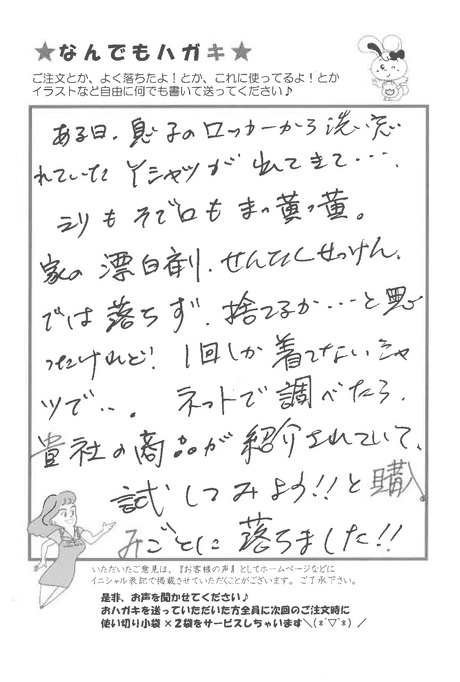 ★なんでもハガキ★
ご注文とか、よく落ちたよ!とか、これに使ってるよ!とか
イラストなど自由に何でも書いて送ってください♪
ある日、息子のロッカーから洗い忘
れていた Yシャツが 出てきて・・・、
エリも そで口も まっ黄っ黄。
家の 漂白剤、せんたくせっけん、
では 落ちず、捨てるか・・・と思
ったけれど! 1回しか 着てないシャ
ツで・・。 ネットで 調べたら、
貴社の商品が 紹介されていて、
試してみよう!!と 購入。
みごとに 落ちました!!
いただいたご意見は、『お客様の声』としてホームページなどに
イニシャル表記で掲載させていただくことがございます。ご了承下さい。
是非、お声を聞かせてください♪
おハガキを送っていただいた方全員に次回のご注文時に
使い切り小袋×2袋をサービスしちゃいます＼(*´▽`*)／